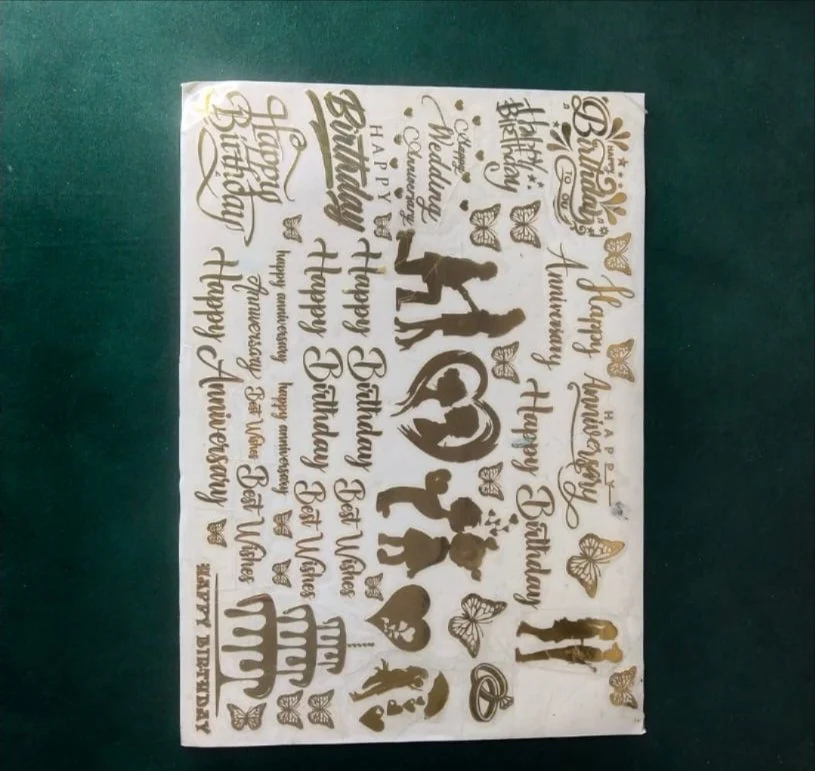 HAPPY
Birthday
TO YOU
Happy
Anniversary
HAPPY
Anniversary
Happy
Birthday
Happy Birthday
Happy
Wedding
Anniversary
HAPPY
Birthday
Happy Birthday Best Wishes
Happy Birthday Best Wishes
Happy
Birthday
happy anniversary happy anniversary
Anniversary Best Wishes Best Wishes
Happy Anniversary
HAPPY BIRTHDAY